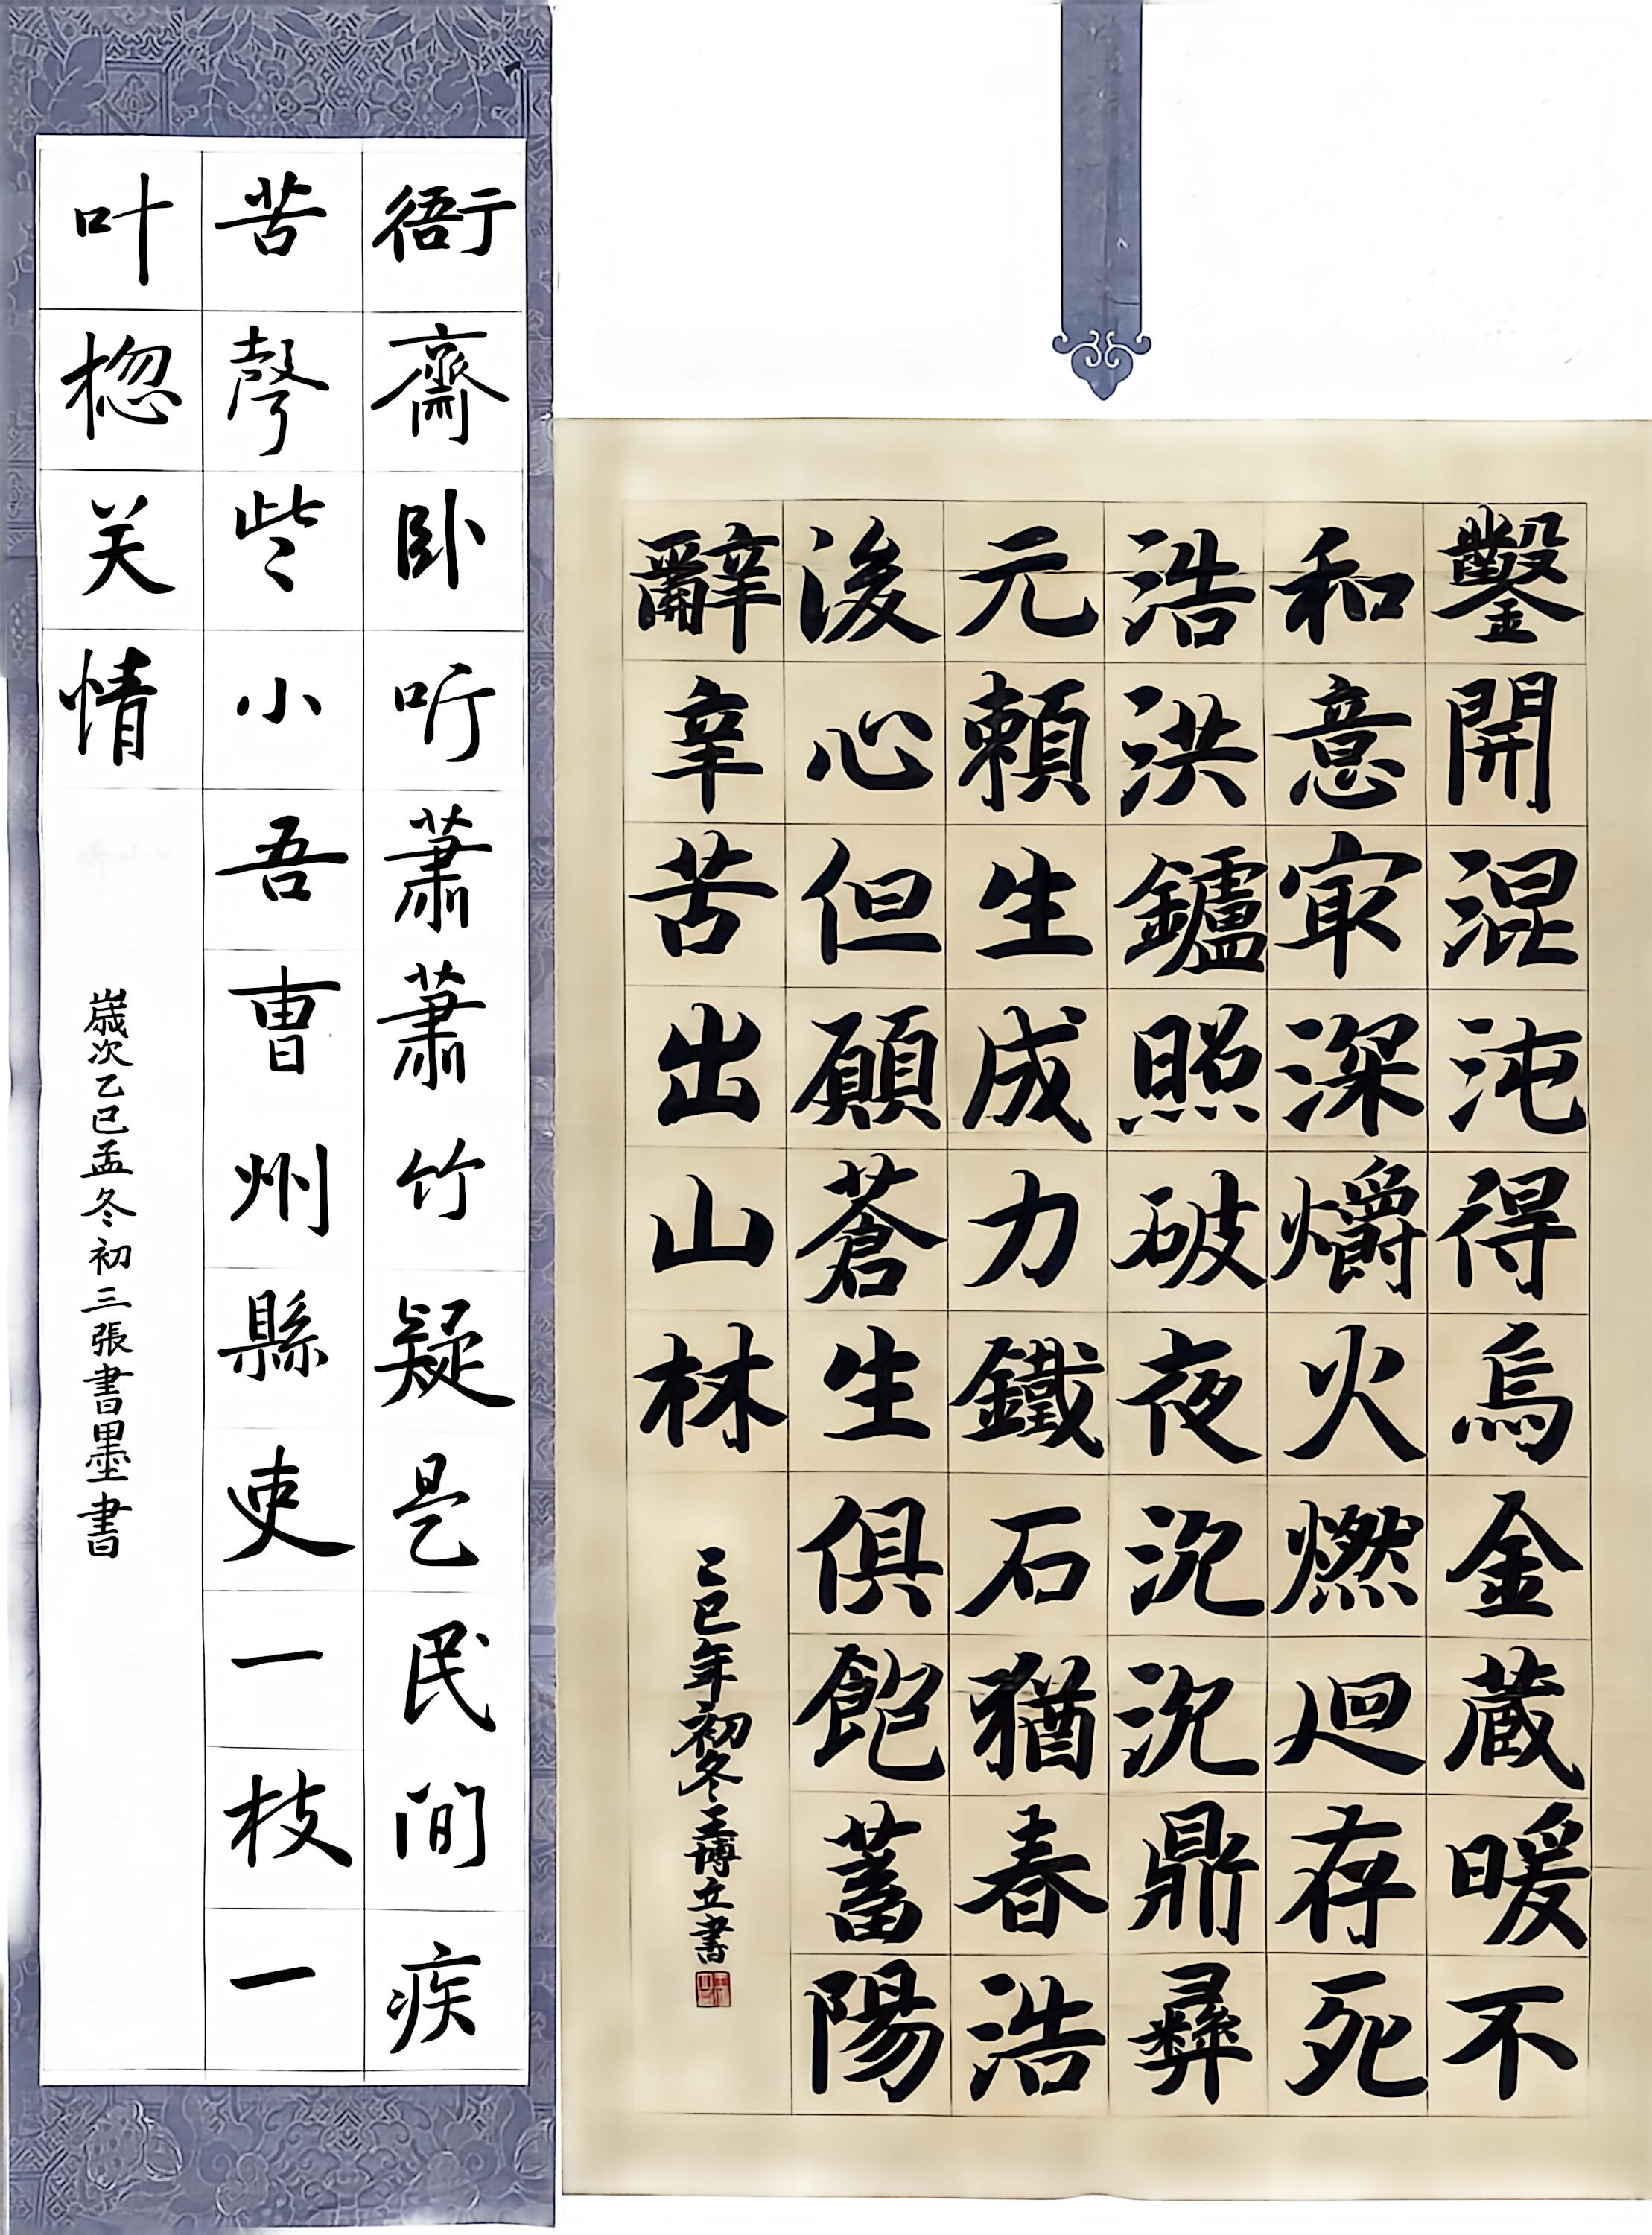 鑿開混沌得烏金蔵暖不
和意㝡深爝火燃迴存死
浩洪鑪照破夜沉沉鼎彝
元賴生成力鐵石猶春浩
後心但願蒼生俱飽蓄陽
辭辛苦出山林
乙巳年初冬王博立書
衙齋卧听蕭蕭竹疑是民间疾
苦聲些小吾曹州縣吏一枝一
叶楤关情
歲次乙巳孟冬初三張書墨書